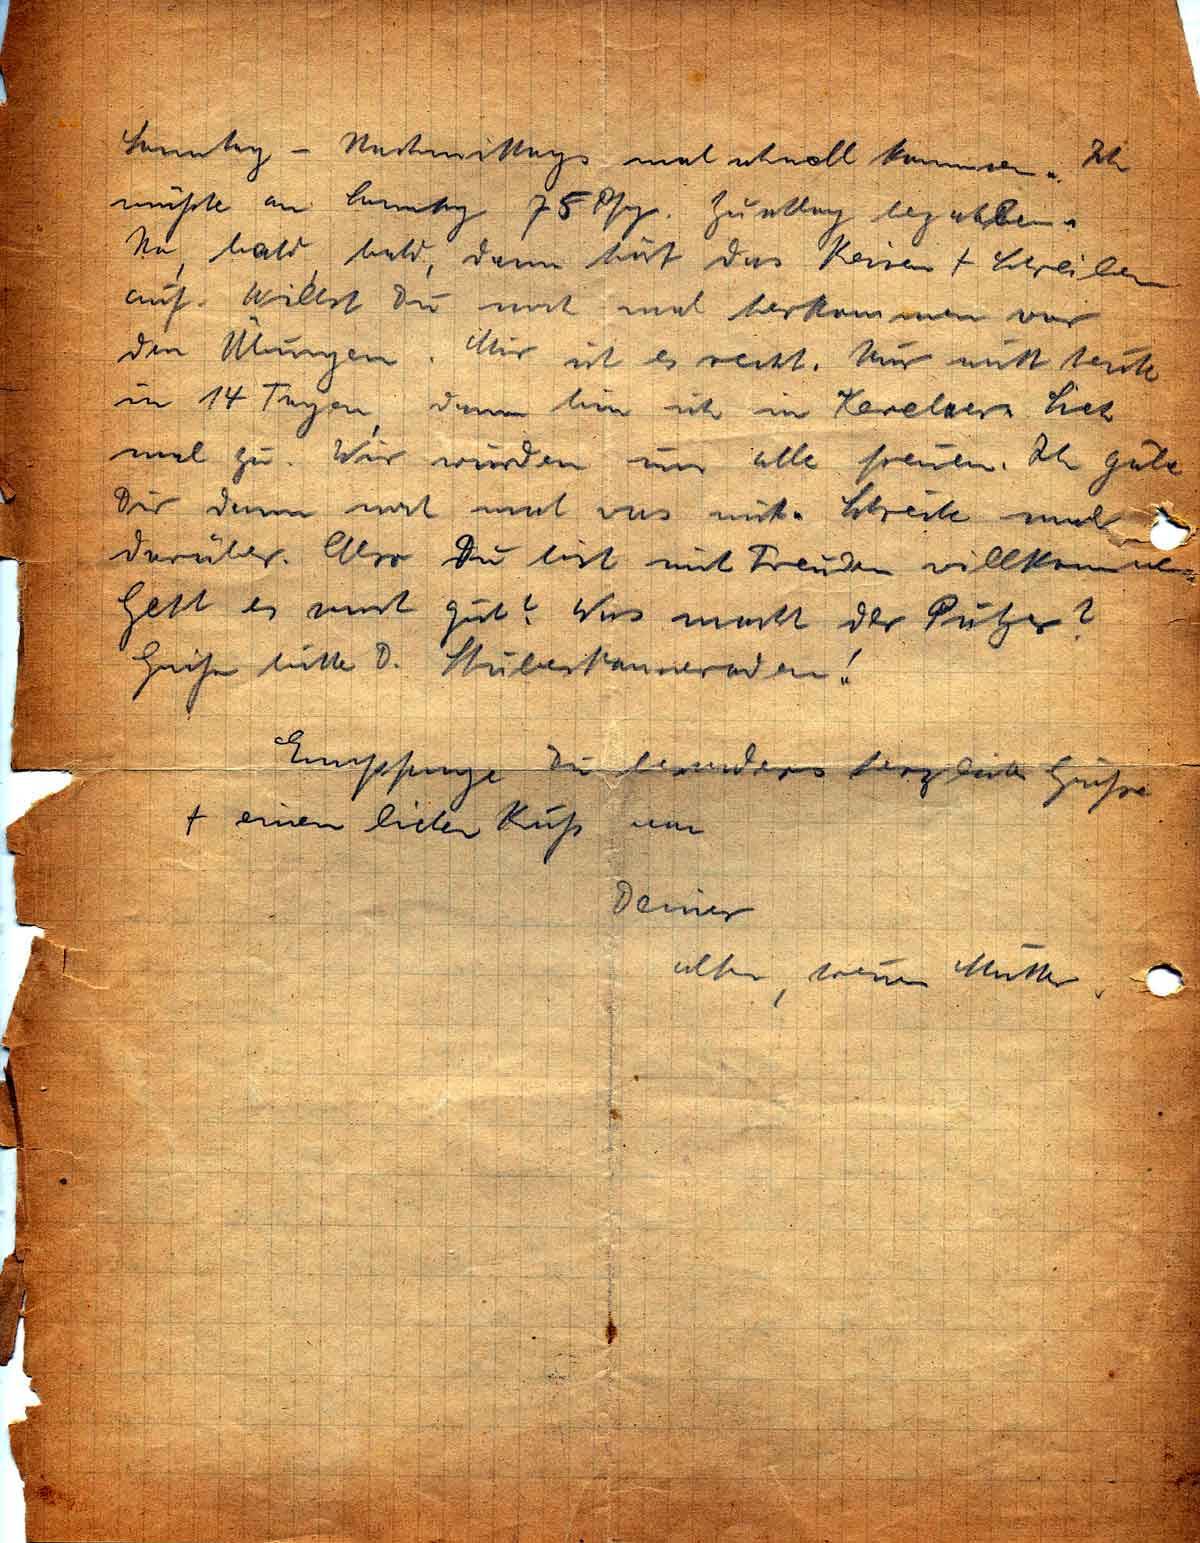 Sonntag - Nachmittags mal schnell kommen. Ich
müßte am Sonntag 75 Pfg. Zuschlag bezahlen.
Na, bald, bald, dann hört das Reisen + Schreiben
auf. Willst Du noch mal herkommen vor
den Übungen. Mir ist es recht. Nur nicht heute
in 14 Tagen, denn bin ich in Sieh
mal zu. Wir würden uns alle freuen. Ich gebe
Dir dann noch mal was mit. Schreibe mal
darüber. Also Du bist mit Freuden willkommen.
Geht es noch gut? Was macht der Putzer?
Grüße bitte D. Stubenkameraden!
Empfange Du besonders herzliche Grüße
+ einen lieben Kuß von
Deiner
alten, treuen Mutter.